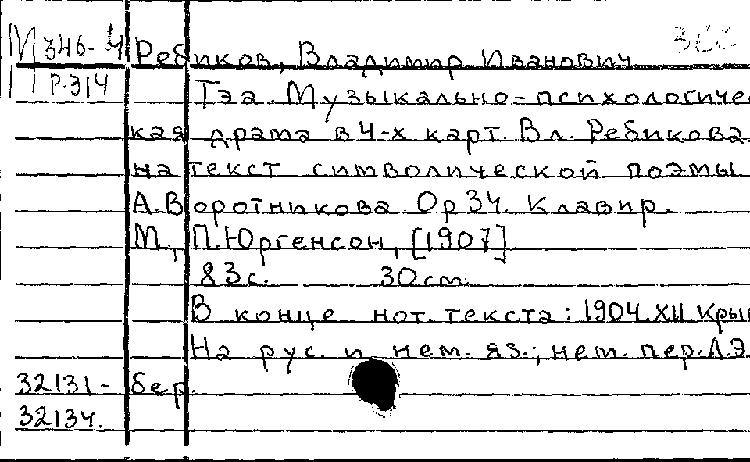 М 346-4 Ребиков, Владимир Иванович
Р-314
Тэа. Музыкально-психологичес
кая драма в 4-х карт. Вл. Ребикова
на текст символической поэмы
А. Воротникова Ор 34. Клавир.
М., П. Юргенсон, [1907]
83с. 30 cm.
В конце нот. текста: 1904.XII Кры
На рус. и нем. яз.; нем. пер. Л.Э.
32131- бер.
32134.